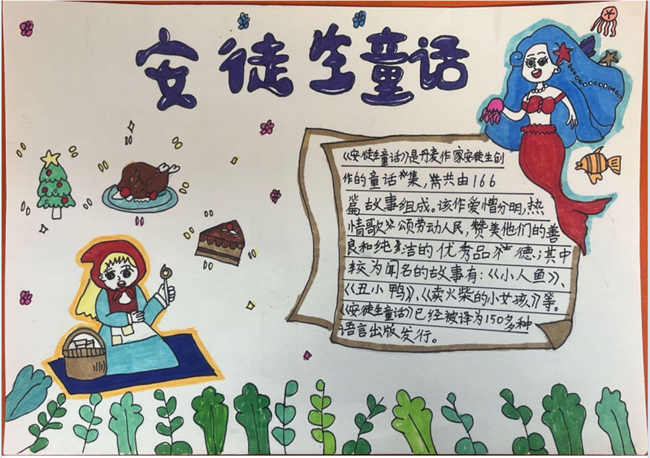 安徒生童话
《安徒生童话》是丹麦作家安徒生创
作的童话集,共由166
篇故事组成。该作爱憎分明,热
情歌颂劳动人民,赞美他们的善
良和纯洁的优秀品德;其中
较为闻名的故事有:《小人鱼》、
《丑小鸭》、《卖火柴的小女孩》等。
《安徒生童话》已经被译为150多种
语言出版发行。